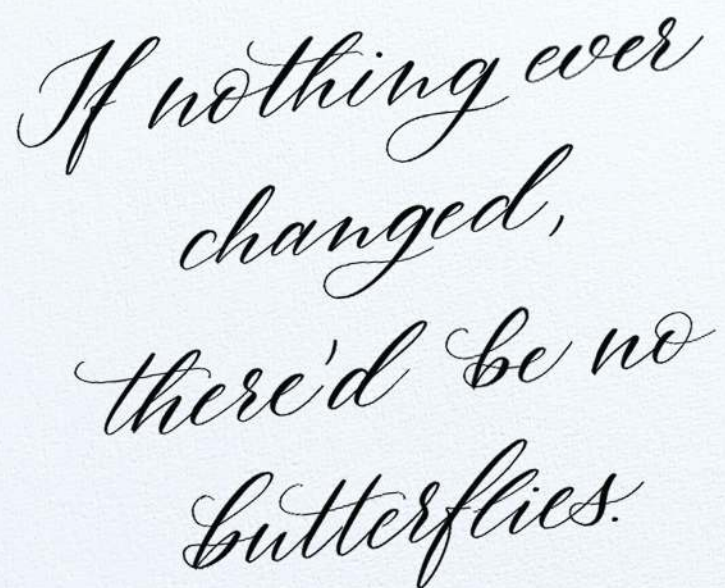 If nothing ever
changed,
there'd be no
butterflies.